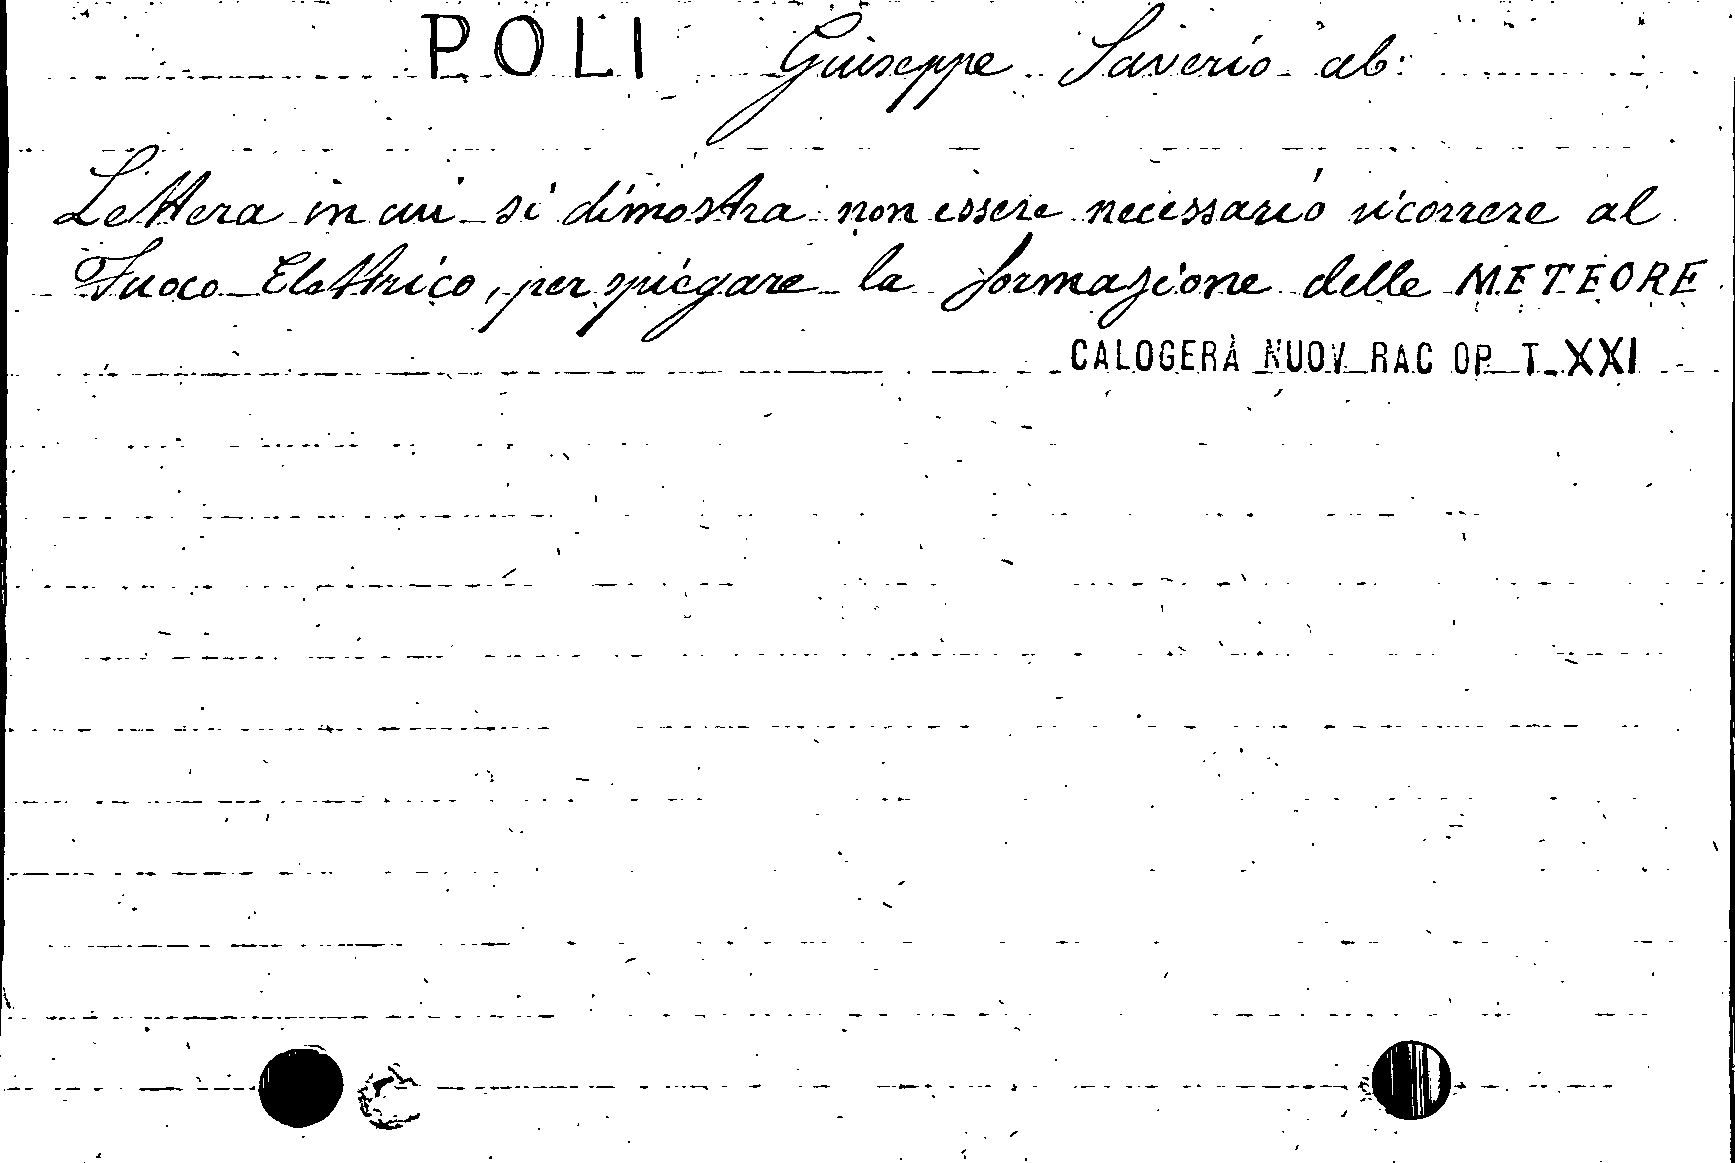 POLI Giuseppe Saverio ab:
Lettera in cui si dimostra non essere necessario ricorrere al
Fuoco Elettrico, per spiegare la formazione delle METEORE
CALOGERÀ NUOV RAC OP T XXI